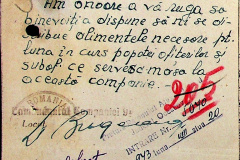 Am onoare a vă ruga să
binevoiți a dispune să ni se di-
stribue alimentele necesare pt.
luna în curs popotei ofițerilor și
subof. ce servesc masa la
această companie.
205
ROMANIA
Comandantul Companiei 9
INTRARE Nr.
943 luna VII ziua 20